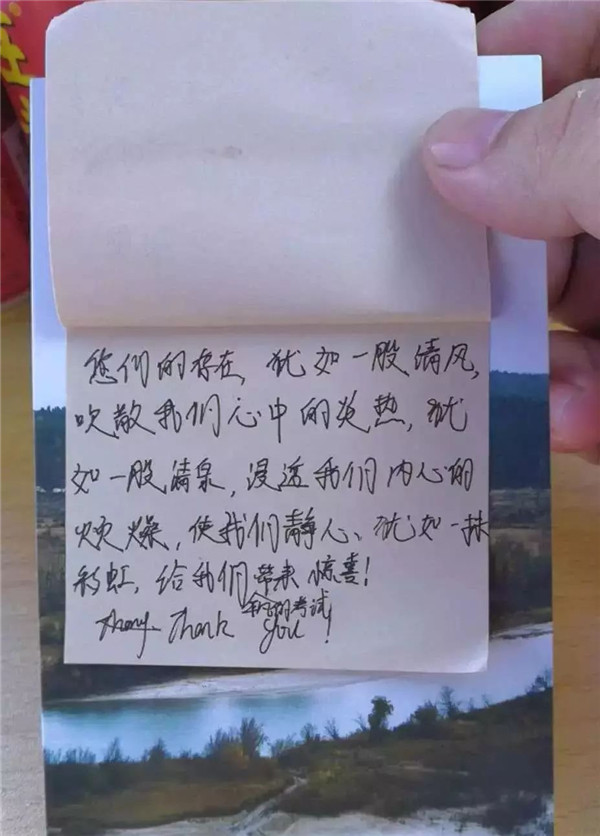 您们的存在,犹如一股清风,
吹散我们心中的炎热,犹
如一股清泉,浸透我们内心的
烦燥,使我们静心、犹如一抹
彩虹,给我们带来惊喜!
的考试
Thank you!